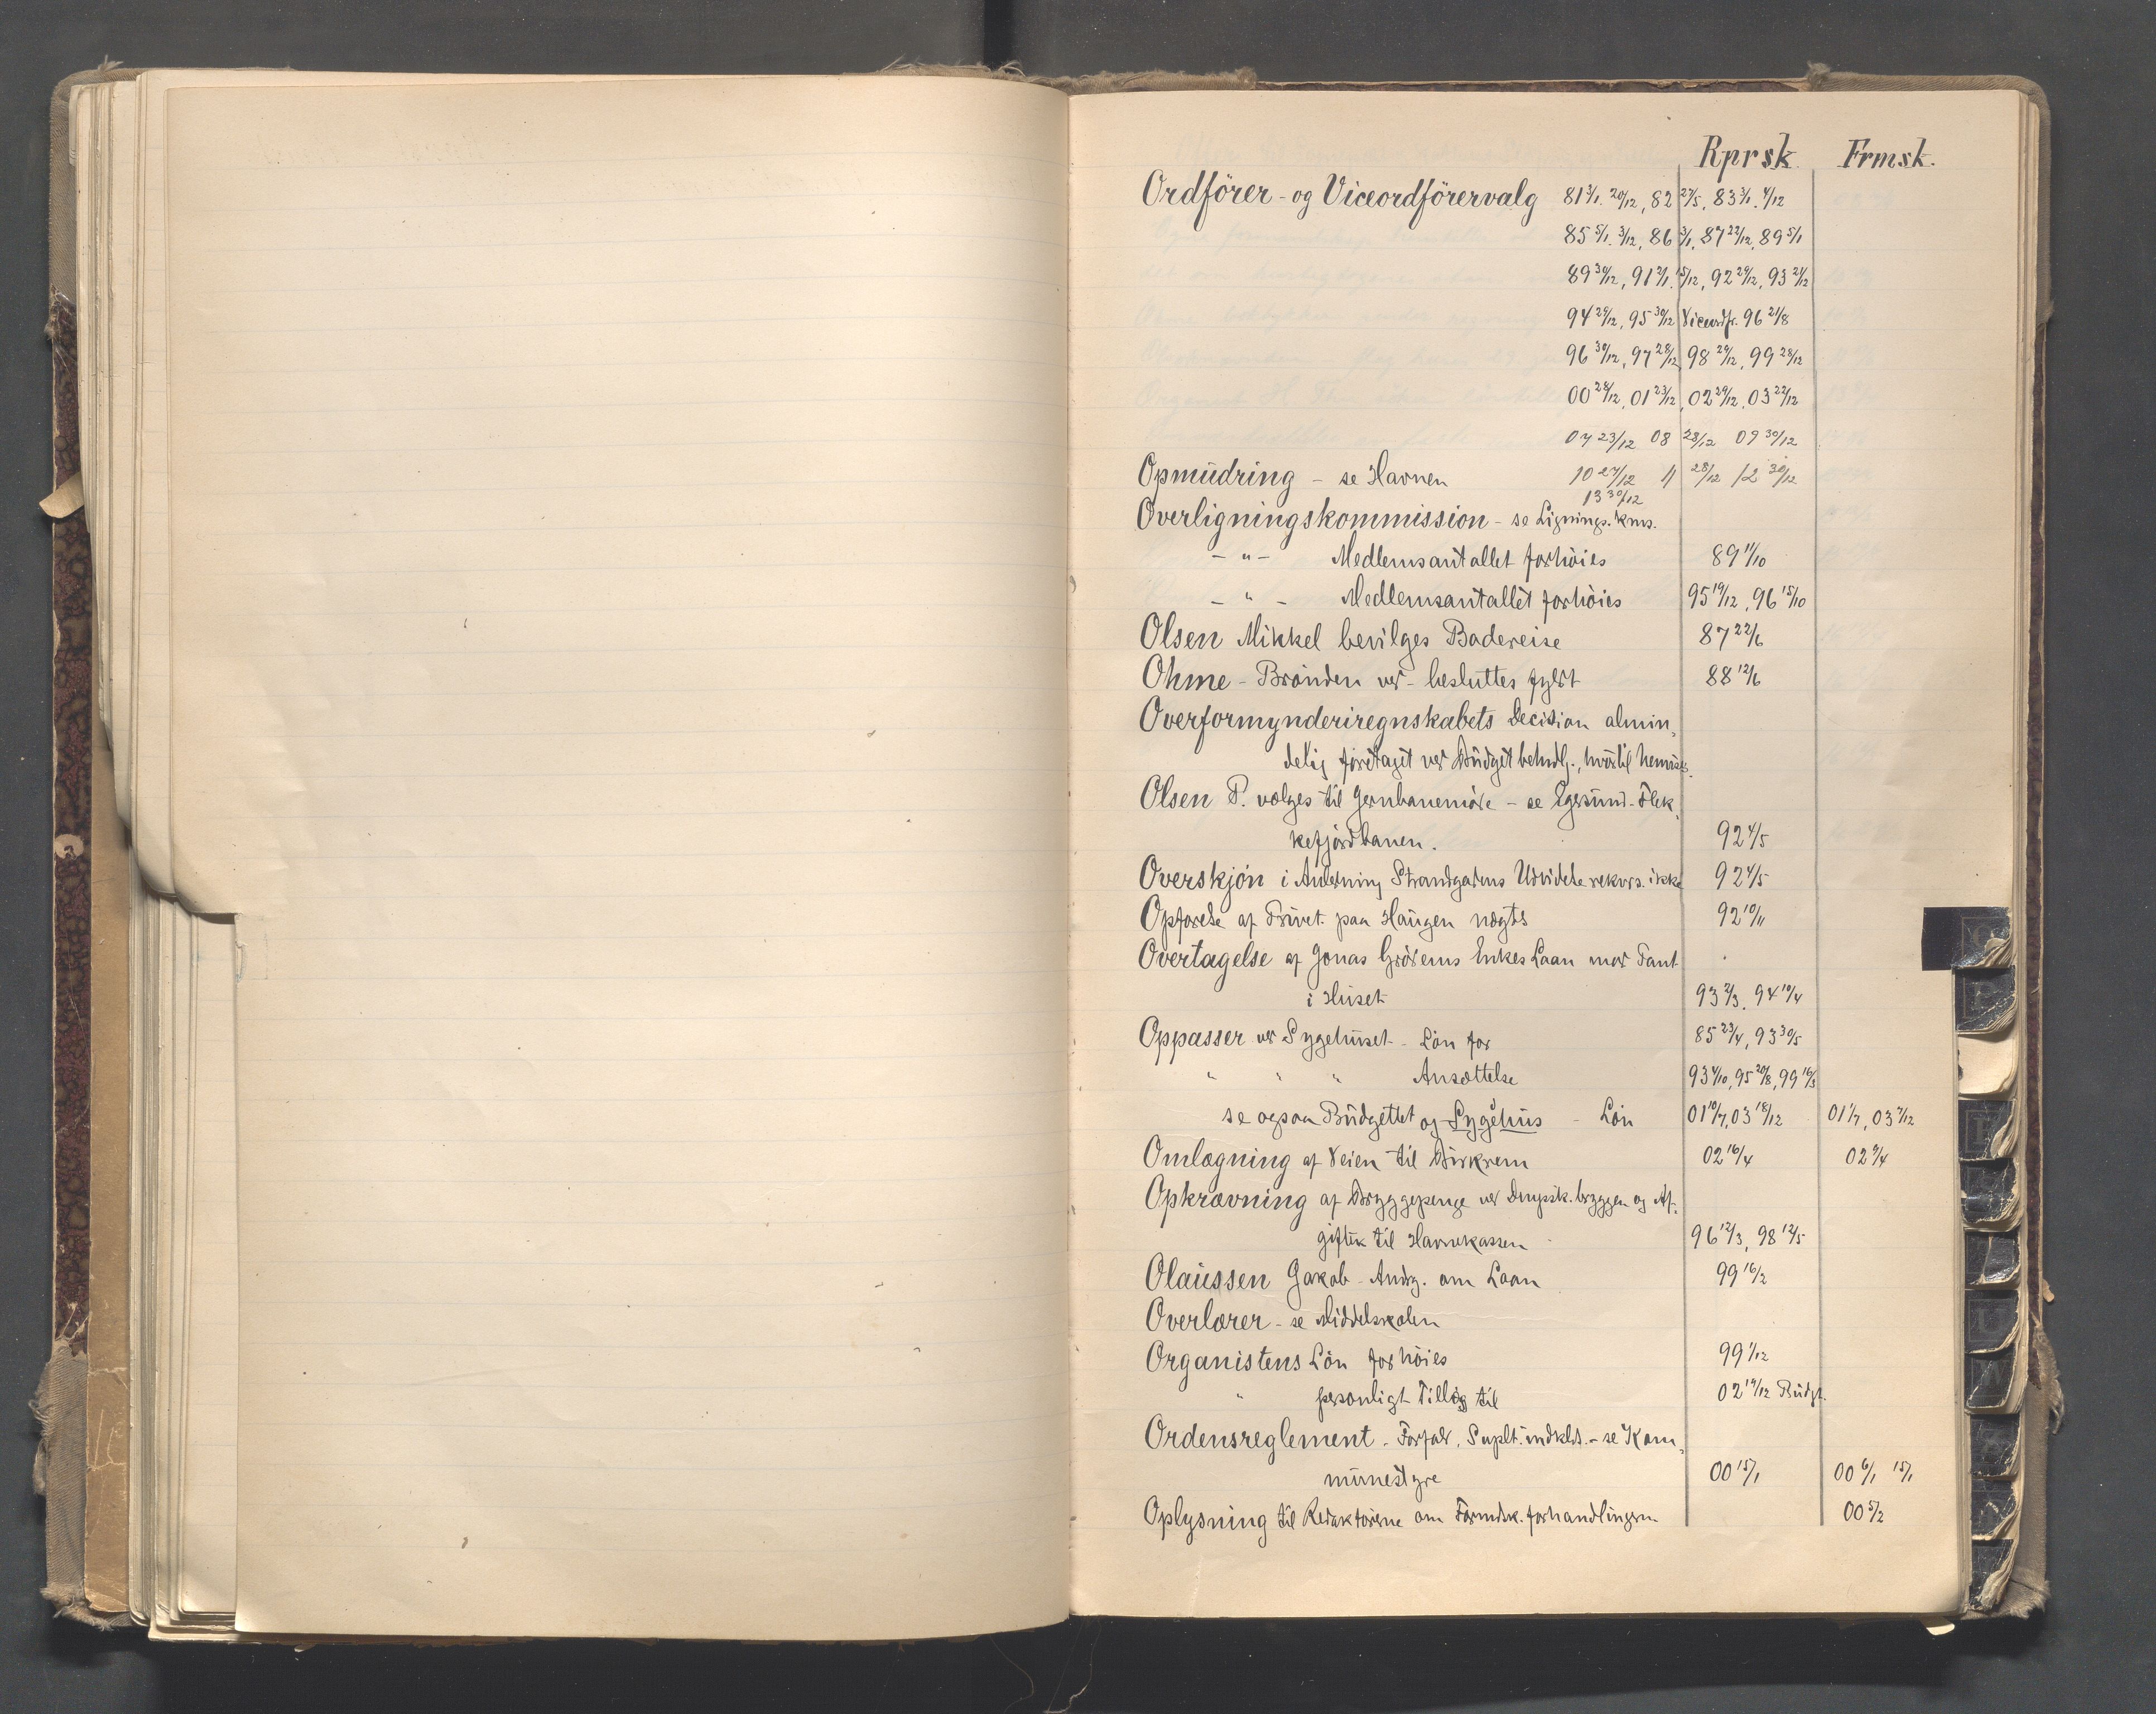 Rprsk. Frmsk.
Ordförer - og Viceordförervalg 81 3/1. 20/12, 82 27/5, 83 3/1. 4/12
85 5/1. 3/12, 86 3/1, 87 22/12, 89 5/1
89 30/12, 91 2/1. 15/12, 92 29/12, 93 21/12
94 29/12, 95 30/12 Viceordfr. 96 21/8
96 30/12, 97 28/12, 98 29/12, 99 28/12
00 28/12, 01 23/12, 02 29/12, 03 22/12
07 23/12 08 28/12 09 30/12
Opmudring - se Havnen 10 27/12 11 28/12 12 30/12
13 30/12
Overligningskommission - se Lignings.kms.
- " - Medlemsantallet forhöies 89 11/10
- " - Medlemsantallet forhöies 95 19/12, 96 15/10
Olsen Mikkel bevilges Badereise 87 22/6
Ohme - Brönden ved - besluttes fyldt 88 12/6
Overformynderiregnskabets Decision almin„
delig foretaget ved Budgetbehndlg., hvortil henvises.
Olsen P. vælges til Jernbanemöde - se Egersund-Flek„
kefjordbanen. 92 4/5
Overskjön i Anledning Strandgadens Udvidelse rekvrs. ikke 92 4/5
Opförelse af Privet paa Haugen nægtes 92 10/11
Overtagelse af Jonas Grödems Enkes Laan mod Pant
i Huset 93 2/3, 94 10/4
Oppasser ved Sygehuset - Lön for 85 23/4, 93 30/5
" " " Ansættelse 93 4/10, 95 20/8, 99 16/3
se ogsaa Budgettet og Sygehus - Lön 01 10/7, 03 18/12 01 1/7, 03 7/12
Omlægning af Veien til Birkrem 02 16/4 02 9/4
Opkrævning af Bryggepenge ved Dampsk.bryggen og Af„
gifter til Havnekassen 96 12/3, 98 12/5
Olaussen Jakob - Andrg. om Laan 99 16/2
Overlærer - se Middelskolen
Organistens Lön forhöies 99 1/12
" personligt Tillæg til 02 19/12 Budgt.
Ordensreglement - Forfald, Suplt. indkldt. - se Kom„
munestyre 00 15/1 00 6/1 15/1
Oplysning til Redaktörerne om Formdsk.forhandlingern 00 5/2